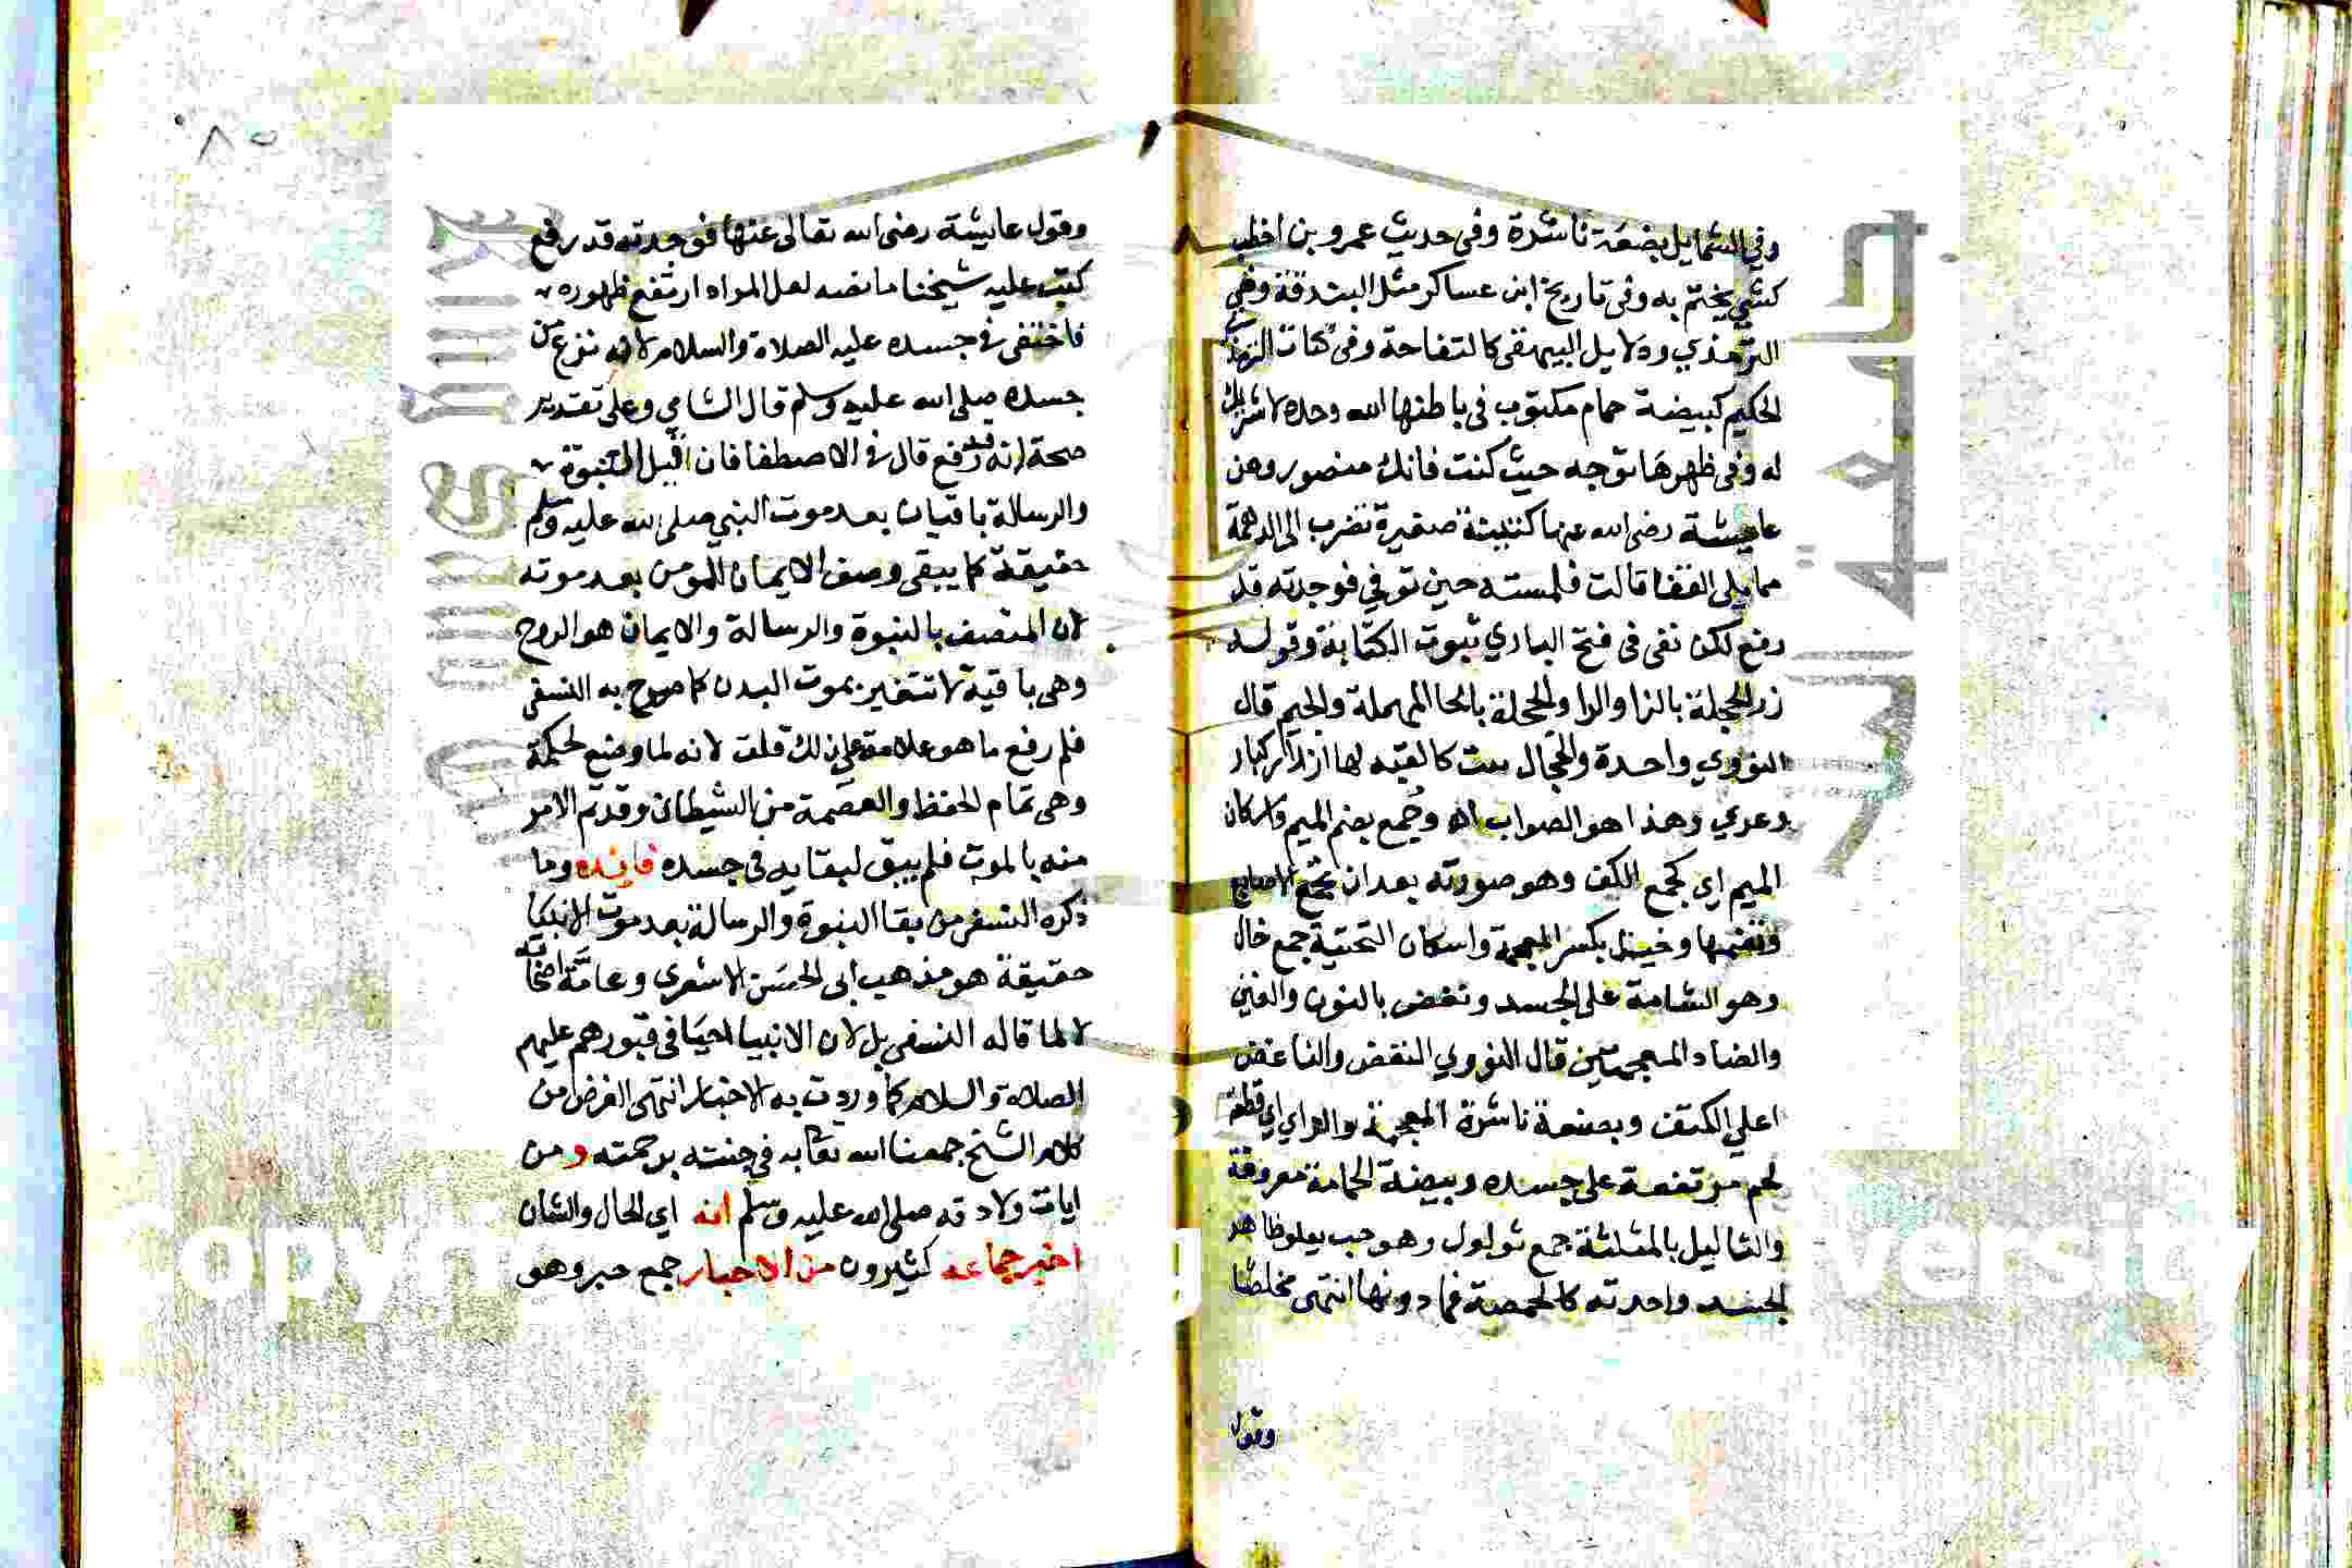 وفي الشمايل بضعة ناشزة وفي حديث عمرو بن اخطب
كشي يختم به وفي تاريخ ابن عساكر مثل البندقة وفي
الترمذي ودلايل البيهقي كالتفاحة وفي كتاب الترمذي
الحكيم كبيضة حمام مكتوب في باطنها الله وحده لا شريك
له وفي ظهرها توجه حيث كنت فانك منصور وعن
عايشة رضي الله عنها كتينة صغيرة تضرب الى الدهمة
مما يلي القفا قالت فلمسته حين توفي فوجدته قد
رفع لكن نفى في فتح الباري ثبوت الكتابة وقوله
زر الحجلة بالزا والرا والحجلة بالحا المهملة والجيم قال
النووي واحدة والحجال بيت كالقبة لها ازرار كبار
وعري وهذا هو الصواب اه وجمع بضم الميم واسكان
الميم اي كجمع الكف وهو صورته بعد ان تجمع الاصابع
وتضمها وخيلان بكسر المعجمة واسكان التحتية جمع خال
وهو الشامة على الجسد ونغض بالنون والغين
والضاد المعجمتين قال النووي النغض والناغض
اعلي الكتف وبضعة ناشزة المعجمة والزاي اي قطعة
لحم مرتفعة على جسده وبيضة الحمامة معروفة
والثاليل بالمثلثة جمع ثولول وهو حب يعلو ظاهر
الجسد واحدته كالحمصة فما دونها انتهى مخلصا
وقول
وقول عايشة رضي الله تعالى عنها فوجدته قد رفع
كتب عليه شيخنا ما نصه لعل المراد ارتفع ظهوره
فاختفى في جسده عليه الصلاة والسلام لا انه نزع من
جسده صلى الله عليه وسلم قال الشامي وعلى تقدير
صحة انه قد رفع قال في الاصطفا فان قيل النبوة
والرسالة باقيان بعد موت النبي صلى الله عليه وسلم
حقيقة كما يبقى وصف الايمان للمومن بعد موته
لان المتصف بالنبوة والرسالة والايمان هو الروح
وهي باقية لا تتغير بموت البدن كما صرح به النسفي
فلم رفع ما هو علامة على ذلك قلت لانه لما وضع لحكمة
وهي تمام الحفظ والعصمة من الشيطان وقد تم الامر
منه بالموت فلم يبق لبقايه في جسده فايده وما
ذكره النسفي من بقا النبوة والرسالة بعد موت الانبيا
حقيقة هو مذهب ابي الحسن الاشعري وعامة اصحابه
لا لما قاله النسفي بل لان الانبيا احيا في قبورهم عليهم
الصلاة والسلام كما وردت به الاخبار انتهى الغرض من
كلام الشيخ جمعنا الله تعالى به في جنته برحمته ومن
ايات ولادته صلى الله عليه وسلم انه اي الحال والشان
اخبر جماعة كثيرون من الاحبار جمع حبر وهو